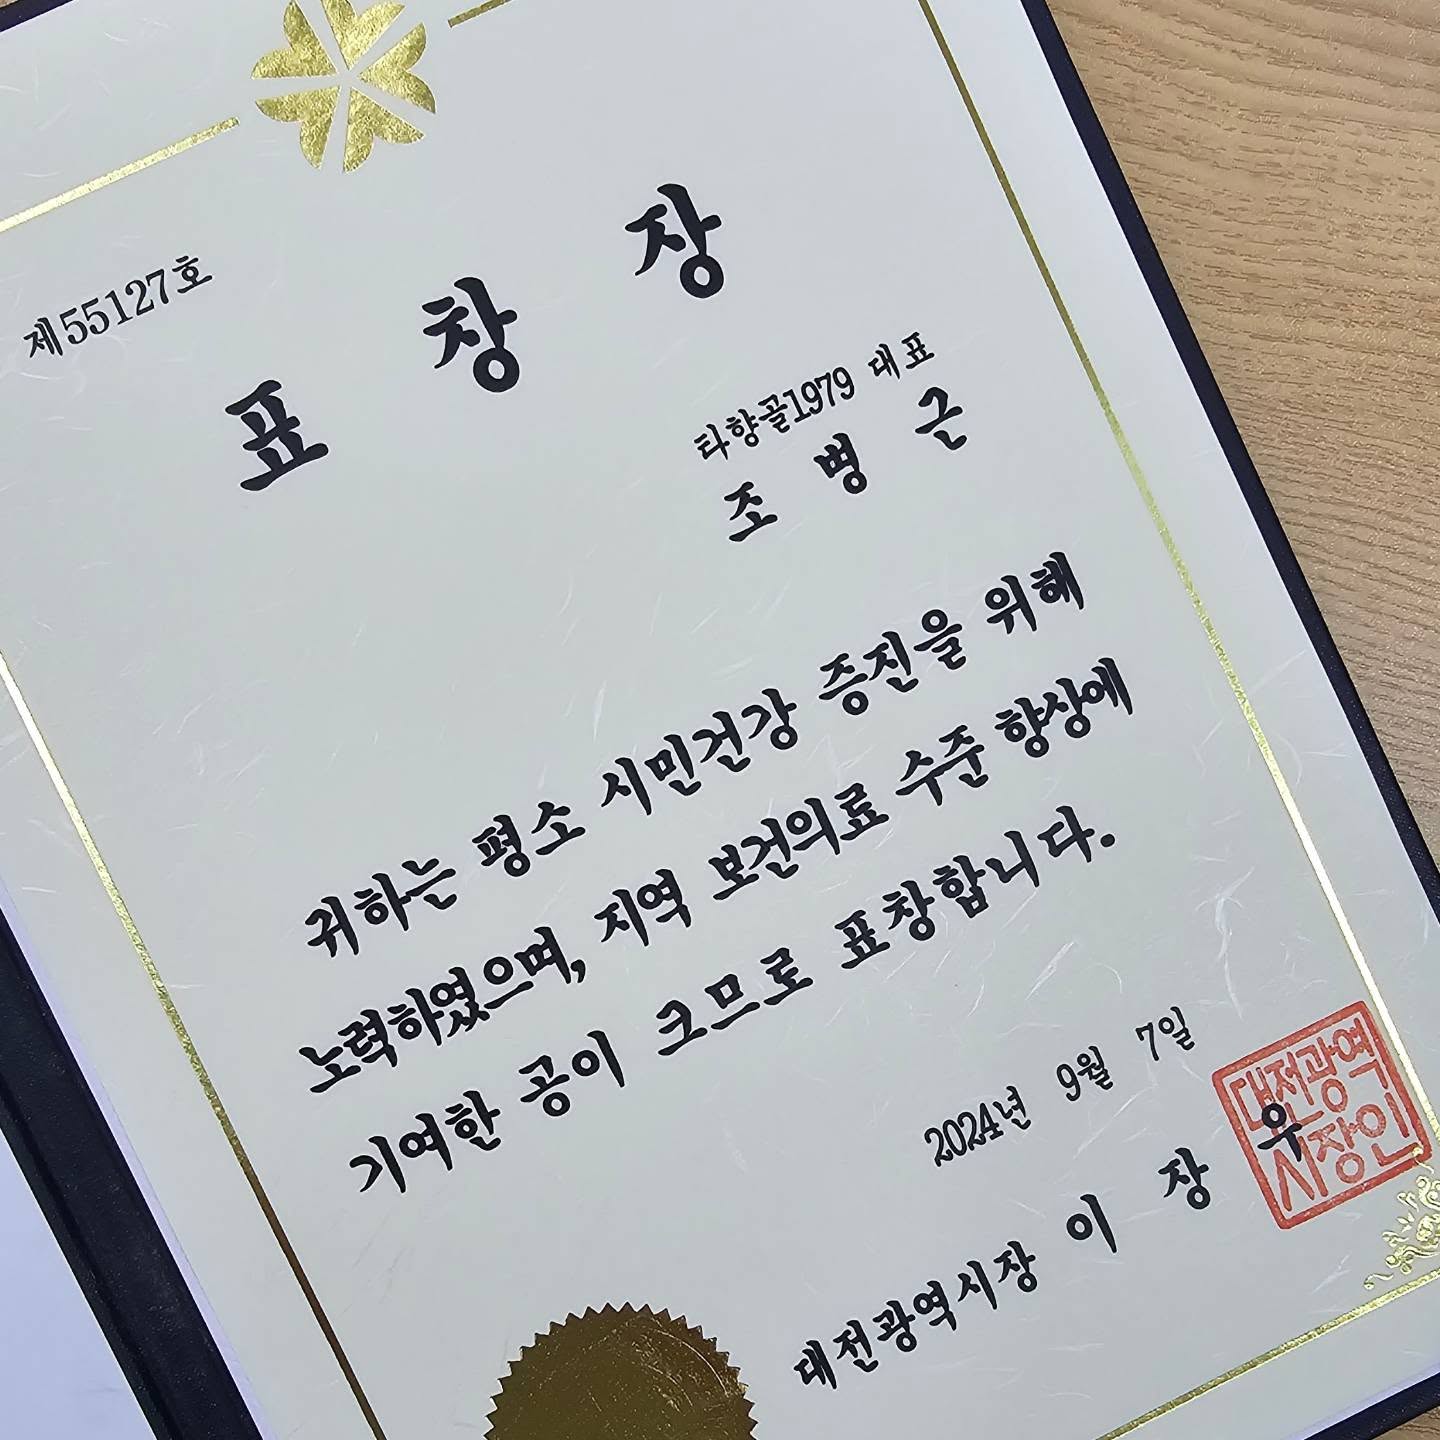 제55127호
표 창 장
타향골1979 대표
조 병 근
귀하는 평소 시민건강 증진을 위해
노력하였으며, 지역 보건의료 수준 향상에
기여한 공이 크므로 표창합니다.
2024년 9월 7일
대전광역시장 이 장 우
대전광역
시장인